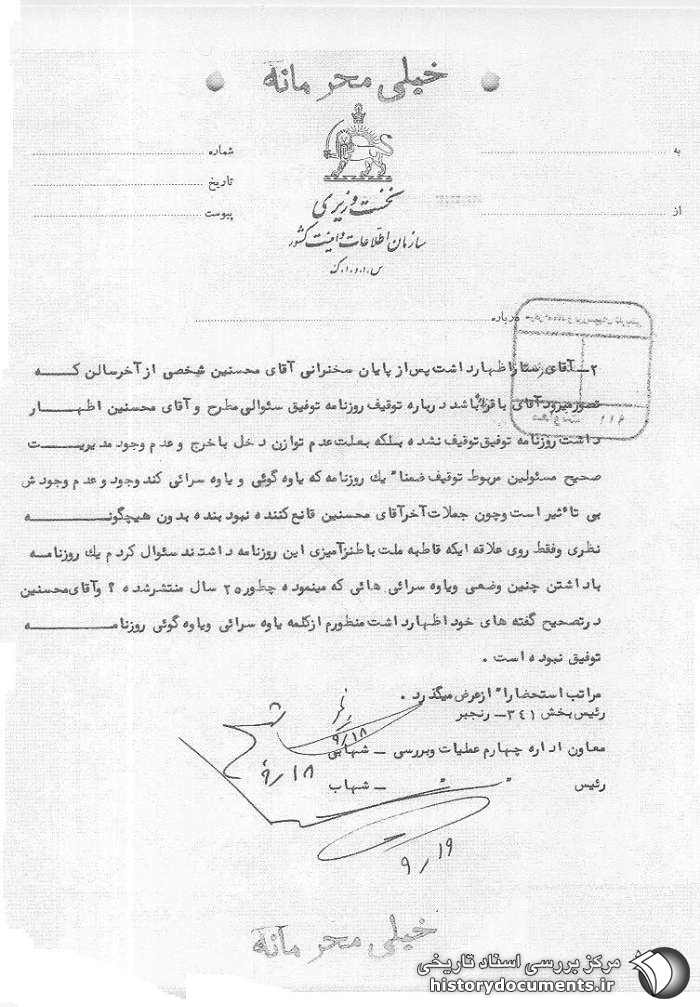 خیلی محرمانه
به
شماره
تاریخ
از
پیوست
نخست وزیری
سازمان اطلاعات و امنیت کشور
س.ا.و.ا.ک
درباره
۲ـ آقای ستار اظهار داشت پس از پایان سخنرانی آقای محسنین شخصی از آخر سالن که
تصور میرود آقای باقر باشد درباره توقیف روزنامه توفیق سئوالی مطرح و آقای محسنین اظهار
داشت روزنامه توفیق توقیف نشده بلکه بعلت عدم توازن دخل با خرج و عدم وجود مدیریت
صحیح مسئولین مربوط توقیف ضمناً یك روزنامه که یاوه گوئی و یاوه سرائی کند وجود و عدم وجودش
بی تأثیر است و چون جملات آخر آقای محسنین قانع کننده نبود بنده بدون هیچگونه
نظری و فقط روی علاقه ایکه قاطبه ملت با طنز آمیزی این روزنامه داشتند سئوال کردم یك روزنامه
با داشتن چنین وضعی ویاوه سرائی هائی که مینموده چطور ۲۵ سال منتشر شده ؟ و آقای محسنین
در تصحیح گفته های خود اظهار داشت منظورم از کلمه یاوه سرائی ویاوه گوئی روزنامه
توفیق نبوده است .
مراتب استحضاراً از عرض میگذرد .
رئیس بخش ۳۴۱ـ رنجبر
۹/۱۸
معاون اداره چهارم عملیات وبررسی ـ شهابی
۹/۱۸
رئیس ـ شهاب
۹/۱۹
خیلی محرمانه
مرکز بررسی اسناد تاریخی
historydocuments.ir